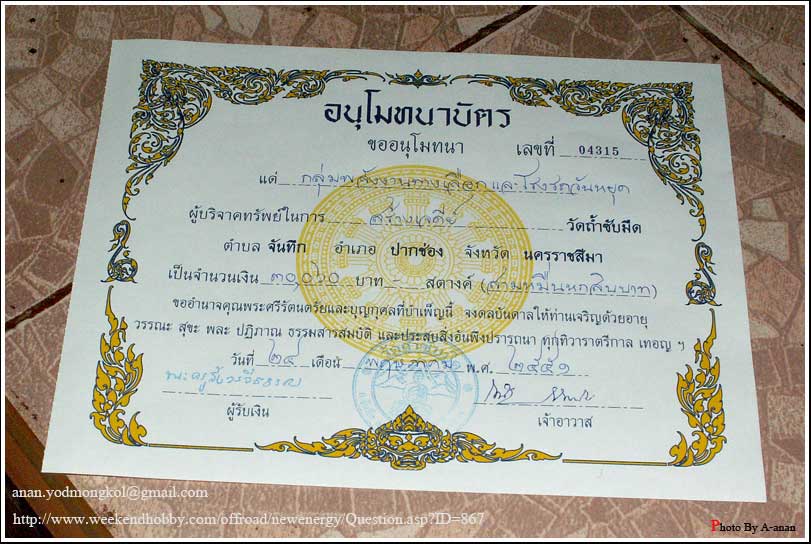 อนุโมทนาบัตร
ขออนุโมทนา เลขที่ 04315
แด่ กลุ่มพลังงานทางเลือก และ
ผู้บริจาคทรัพย์ในการ สร้างเจดีย์ วัดถ้ำซับมืด
ตำบล จันทึก อำเภอ ปากช่อง จังหวัด นครราชสีมา
เป็นจำนวนเงิน ๓๐,๐๖๐ บาท - สตางค์ (สามหมื่นหกสิบบาท)
ขออำนาจคุณพระศรีรัตนตรัยและบุญกุศลที่บำเพ็ญนี้ จงดลบันดาลให้ท่านเจริญด้วยอายุ
วรรณะ สุขะ พละ ปฏิภาณ ธรรมสารสมบัติ และประสบสิ่งอันพึงปรารถนา ทุกทิวาราตรีกาล เทอญ ฯ
วันที่ ๒๔ เดือน พฤษภาคม พ.ศ. ๒๕๕๑
ผู้รับเงิน เจ้าอาวาส
anan.yodmongkol@gmail.com
http://www.weekendhobby.com/offroad/newenergy/Question.asp?ID=867
Photo By A-anan